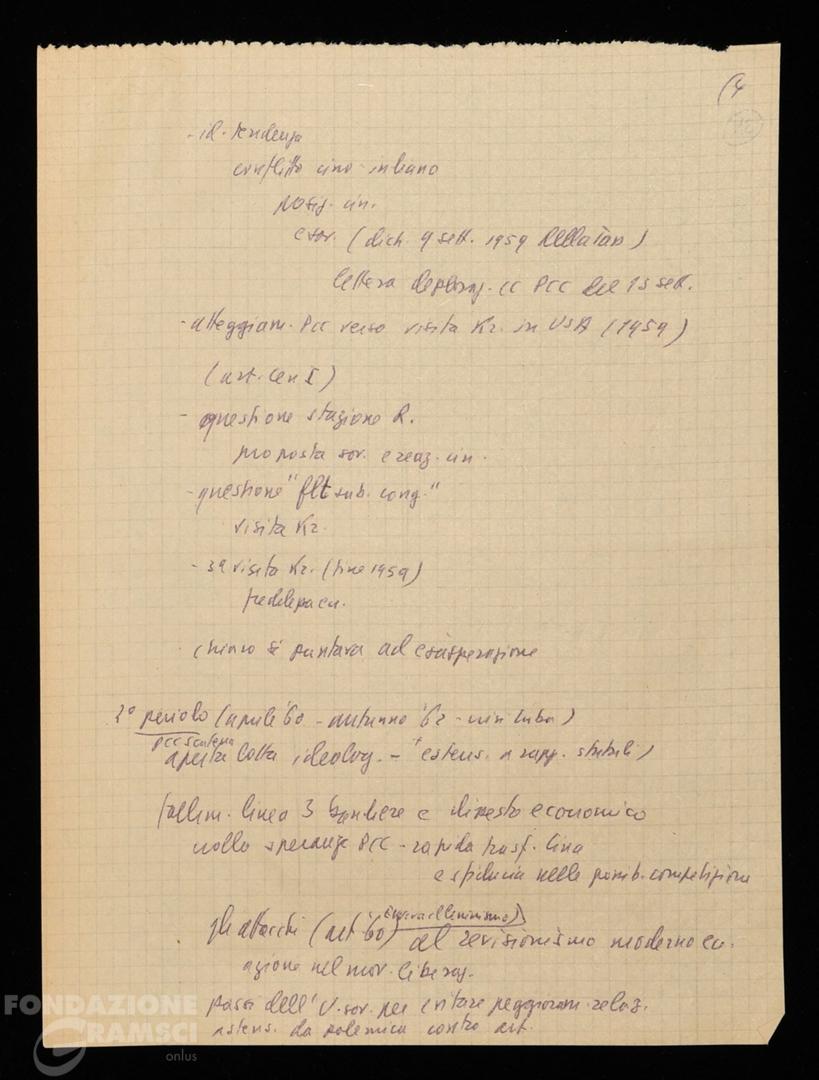 (4
- id. tendenza
conflitto cino-indiano
posiz. cin.
e sov. (dich. 9 sett. 1959 della Tass)
lettera deploraz. CC PCC del 13 sett.
- atteggiam. PCC verso visita Kr. in USA (1959)
(art. Cen I)
- questione stazione R.
proposta sov. e reaz. cin.
- questione "flt sub. cong."
visita Kr.
- 3a visita Kr. (fine 1959)
chiaro si puntava ad esasperazione
2° periodo (aprile '60 - autunno '62 - crisi Cuba)
PCC scatena
aperta lotta ideolog. - + estens. a rapp. statali)
fallim. linea 3 bandiere e dissesto economico
crollo speranze PCC - rapida trasf. Cina
e sfiducia nelle possib. competizione
gli attacchi (art. '60) al revisionismo moderno ecc.
(Evviva il leninismo)
azione nel mov. liberaz.
passi dell'U. sov. per evitare peggioram. relaz.
astens. da polemica contro art.
FONDAZIONE
GRAMSCI
onlus